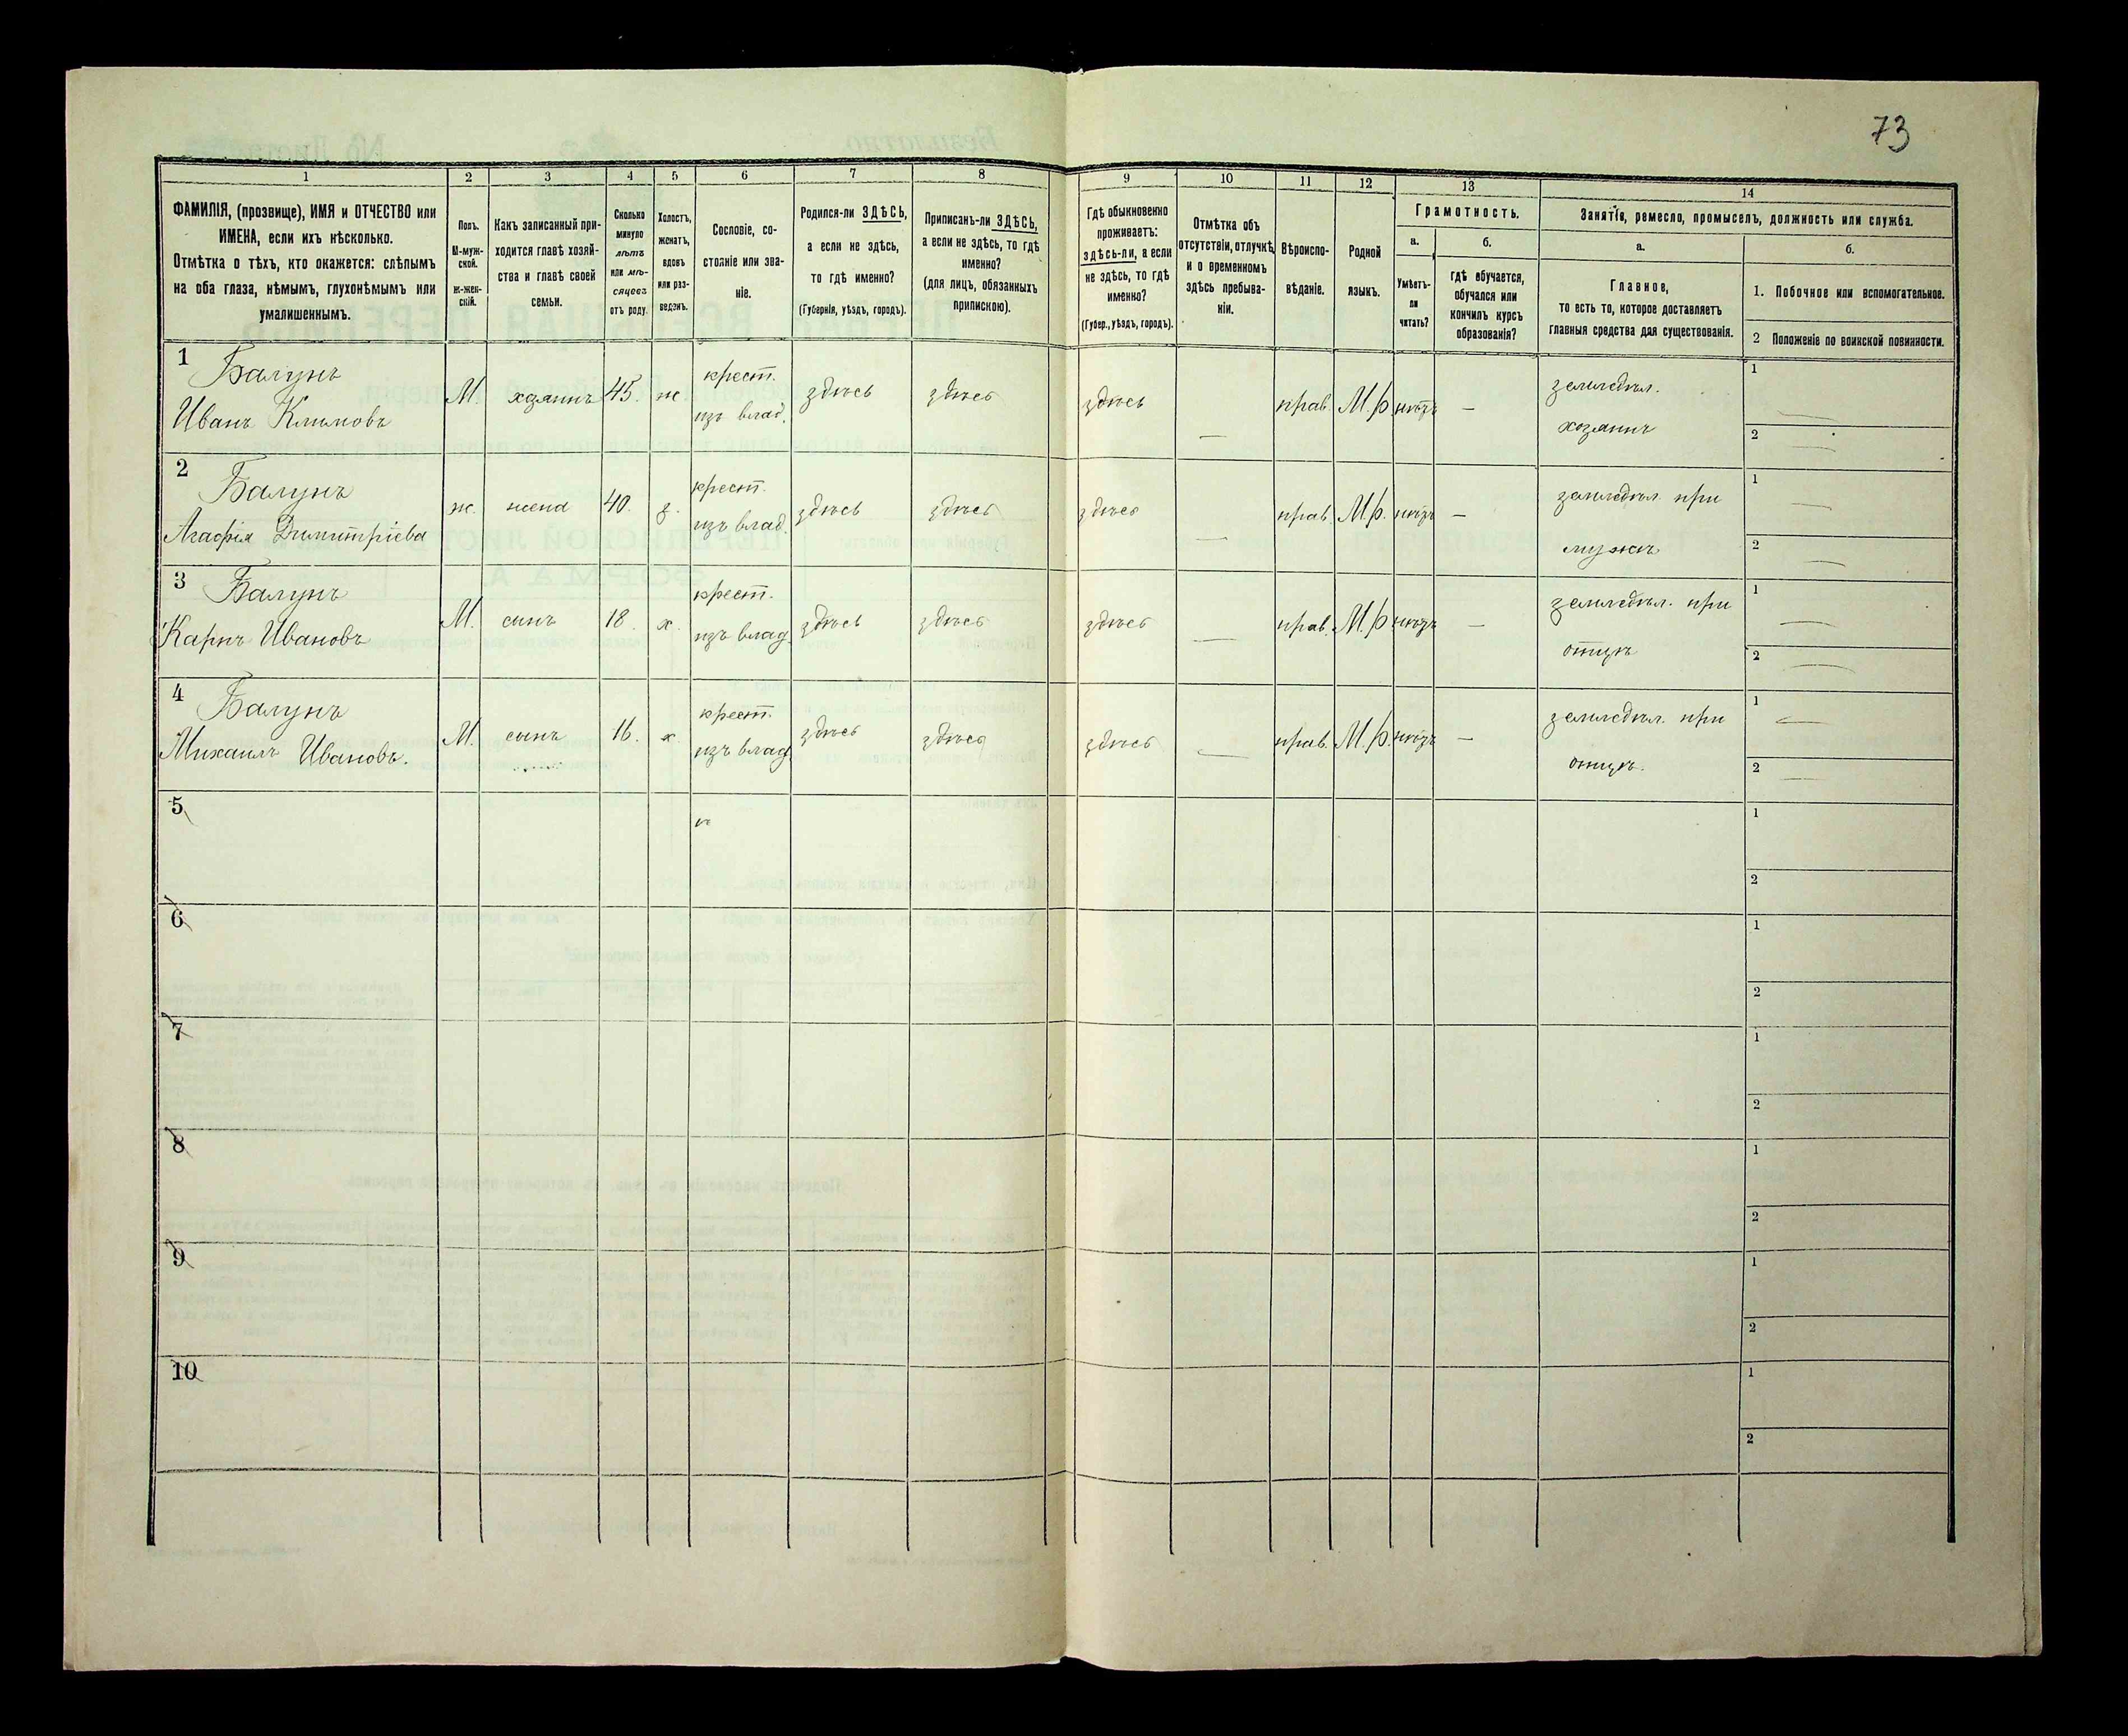 73
1
2
3
4
5
6
7
8
9
10
11
12
13
14
ФАМИЛІЯ, (прозвище), ИМЯ и ОТЧЕСТВО или
ИМЕНА, если ихъ нѣсколько.
Отмѣтка о тѣхъ, кто окажется: слѣпымъ
на оба глаза, нѣмымъ, глухонѣмымъ или
умалишеннымъ.
Полъ.
М-муж-
ской.
Ж-жен-
скій.
Какъ записанный при-
ходится главѣ хозяй-
ства и главѣ своей
семьи.
Сколько
минуло
лѣтъ
или мѣ-
сяцевъ
отъ роду.
Холостъ,
женатъ,
вдовъ
или раз-
веденъ.
Сословіе, со-
стояніе или зва-
ніе.
Родился-ли ЗДѢСЬ,
а если не здѣсь,
то гдѣ именно?
(Губернія, уѣздъ, городъ).
Приписанъ-ли ЗДѢСЬ,
а если не здѣсь, то гдѣ
именно?
(для лицъ, обязанныхъ
припискою).
Гдѣ обыкновенно
проживаетъ:
здѣсь-ли, а если
не здѣсь, то гдѣ
именно?
(Губер., уѣздъ, городъ).
Отмѣтка объ
отсутствіи, отлучкѣ
и о временномъ
здѣсь пребыва-
ніи.
Вѣроиспо-
вѣданіе.
Родной
языкъ.
Грамотность.
а.
Умѣетъ-
ли
читать?
б.
гдѣ обучается,
обучался или
кончилъ курсъ
образованія?
Занятія, ремесло, промыселъ, должность или служба.
а.
Главное,
то есть то, которое доставляетъ
главныя средства для существованія.
б.
1. Побочное или вспомогательное.
2 Положеніе по воинской повинности.
1
Балунъ
Иванъ Климовъ
М.
хозяинъ
45.
ж
крест.
изъ влад.
здѣсь
здѣсь
здѣсь
—
прав.
М.р
нѣтъ
—
земледѣл.
хозяинъ
1
—
2
—
2
Балунъ
Агафія Димитріева
ж.
жена
40.
з.
крест.
изъ влад.
здѣсь
здѣсь
здѣсь
—
прав.
М.р.
нѣтъ
—
земледѣл. при
мужѣ
1
—
2
—
3
Балунъ
Карпъ Ивановъ
М.
сынъ
18.
х.
крест.
изъ влад.
здѣсь
здѣсь
здѣсь
—
прав.
М.р
нѣтъ
—
земледѣл. при
отцѣ
1
—
2
—
4
Балунъ
Михаилъ Ивановъ.
М.
сынъ
16.
х.
крест.
изъ влад
здѣсь
здѣсь
здѣсь
—
прав.
М.р.
нѣтъ
—
земледѣл. при
отцѣ.
1
—
2
—
5
1
2
6
1
2
7
1
2
8
1
2
9
1
2
10
1
2